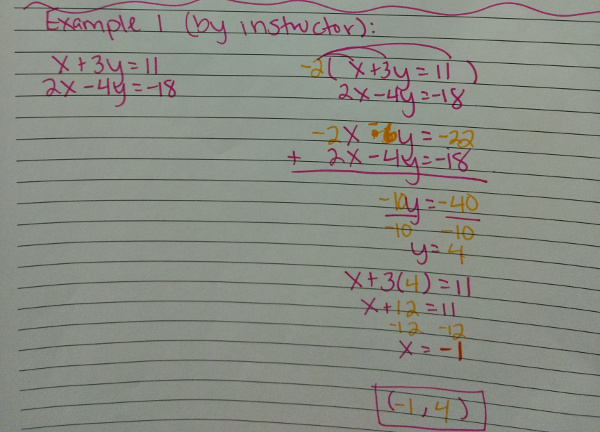 Example 1 (by instructor):
x + 3y = 11
2x - 4y = -18
-2( x + 3y = 11 )
2x - 4y = -18
-2x - 6y = -22
+ 2x - 4y = -18
-10y = -40
-10 -10
y = 4
x + 3(4) = 11
x + 12 = 11
-12 -12
x = -1
(-1, 4)